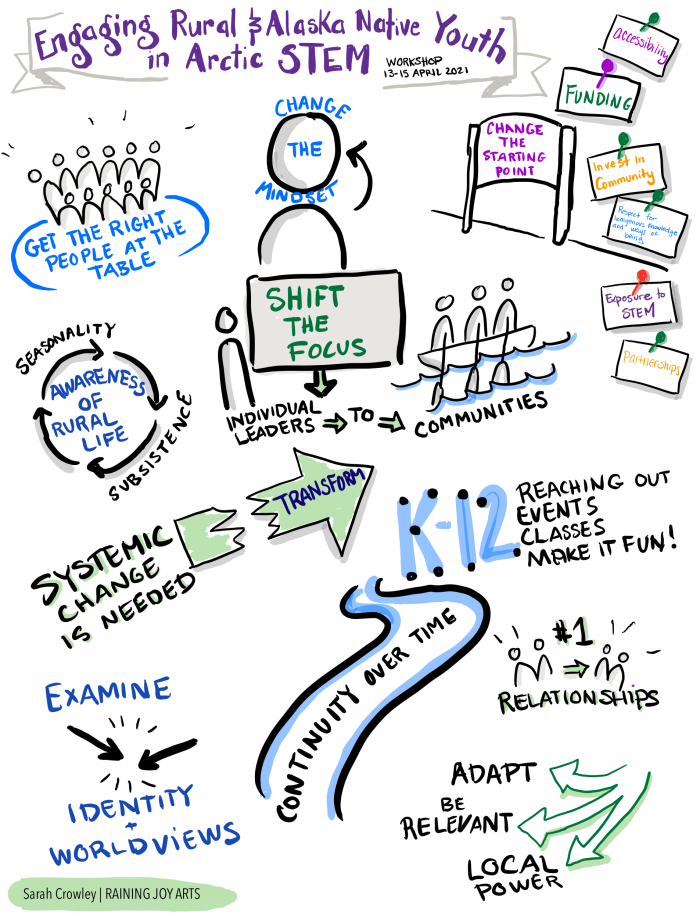 Engaging Rural & Alaska Native Youth
in Arctic STEM
WORKSHOP
13-15 APRIL 2021
accessibility
FUNDING
Invest In
Community
Respect for
Indigenous Knowledge
and ways of
being
Exposure to
STEM
Partnerships
CHANGE
THE
MINDSET
CHANGE
THE
STARTING
POINT
GET THE RIGHT
PEOPLE AT THE
TABLE
SHIFT
THE
FOCUS
INDIVIDUAL
LEADERS
TO
COMMUNITIES
SEASONALITY
AWARENESS
OF
RURAL
LIFE
SUBSISTENCE
TRANSFORM
SYSTEMIC
CHANGE
IS NEEDED
K-12
REACHING OUT
EVENTS
CLASSES
MAKE IT FUN!
CONTINUITY OVER TIME
#1
RELATIONSHIPS
EXAMINE
IDENTITY
+
WORLDVIEWS
ADAPT
BE
RELEVANT
LOCAL
POWER
Sarah Crowley | RAINING JOY ARTS